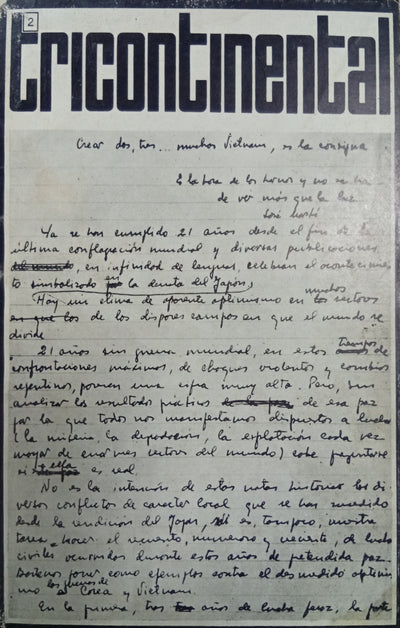 2
tricontinental
Crear dos, tres... muchos Vietnam, es la consigna
Es la hora de los hornos y no se ha
de ver más que la luz.
José Martí
Ya se han cumplido 21 años desde el fin de la
última conflagración mundial y diversas publicaciones
del mundo, en infinidad de lenguas, celebran el acontecimien
to simbolizado en la derrota del Japón,
Hay un clima de aparente optimismo en muchos los sectores
en que los de los dispares campos en que el mundo se
divide
21 años sin guerra mundial, en estos tiempos de
confrontaciones máximas, de choques violentos y cambios
repentinos, parecen una cifra muy alta. Pero, sin
analizar los resultados prácticos de la paz de esa paz
por la que todos nos manifestamos dispuestos a luchar
(la miseria, la degradación, la explotación cada vez
mayor de enormes sectores del mundo) cabe preguntarse
si ella es real.
No es la intención de estas notas historiar los di
versos conflictos de carácter local que se han sucedido
desde la rendición del Japón, es, tampoco, nuestra
tarea hacer el recuento, numeroso y creciente, de luchas
civiles ocurridas durante estos años de pretendida paz.
Bástenos poner como ejemplos contra el desmedido optimis
mo las guerras de Corea y Vietnam.
En la primera, tras años de lucha feroz, la parte